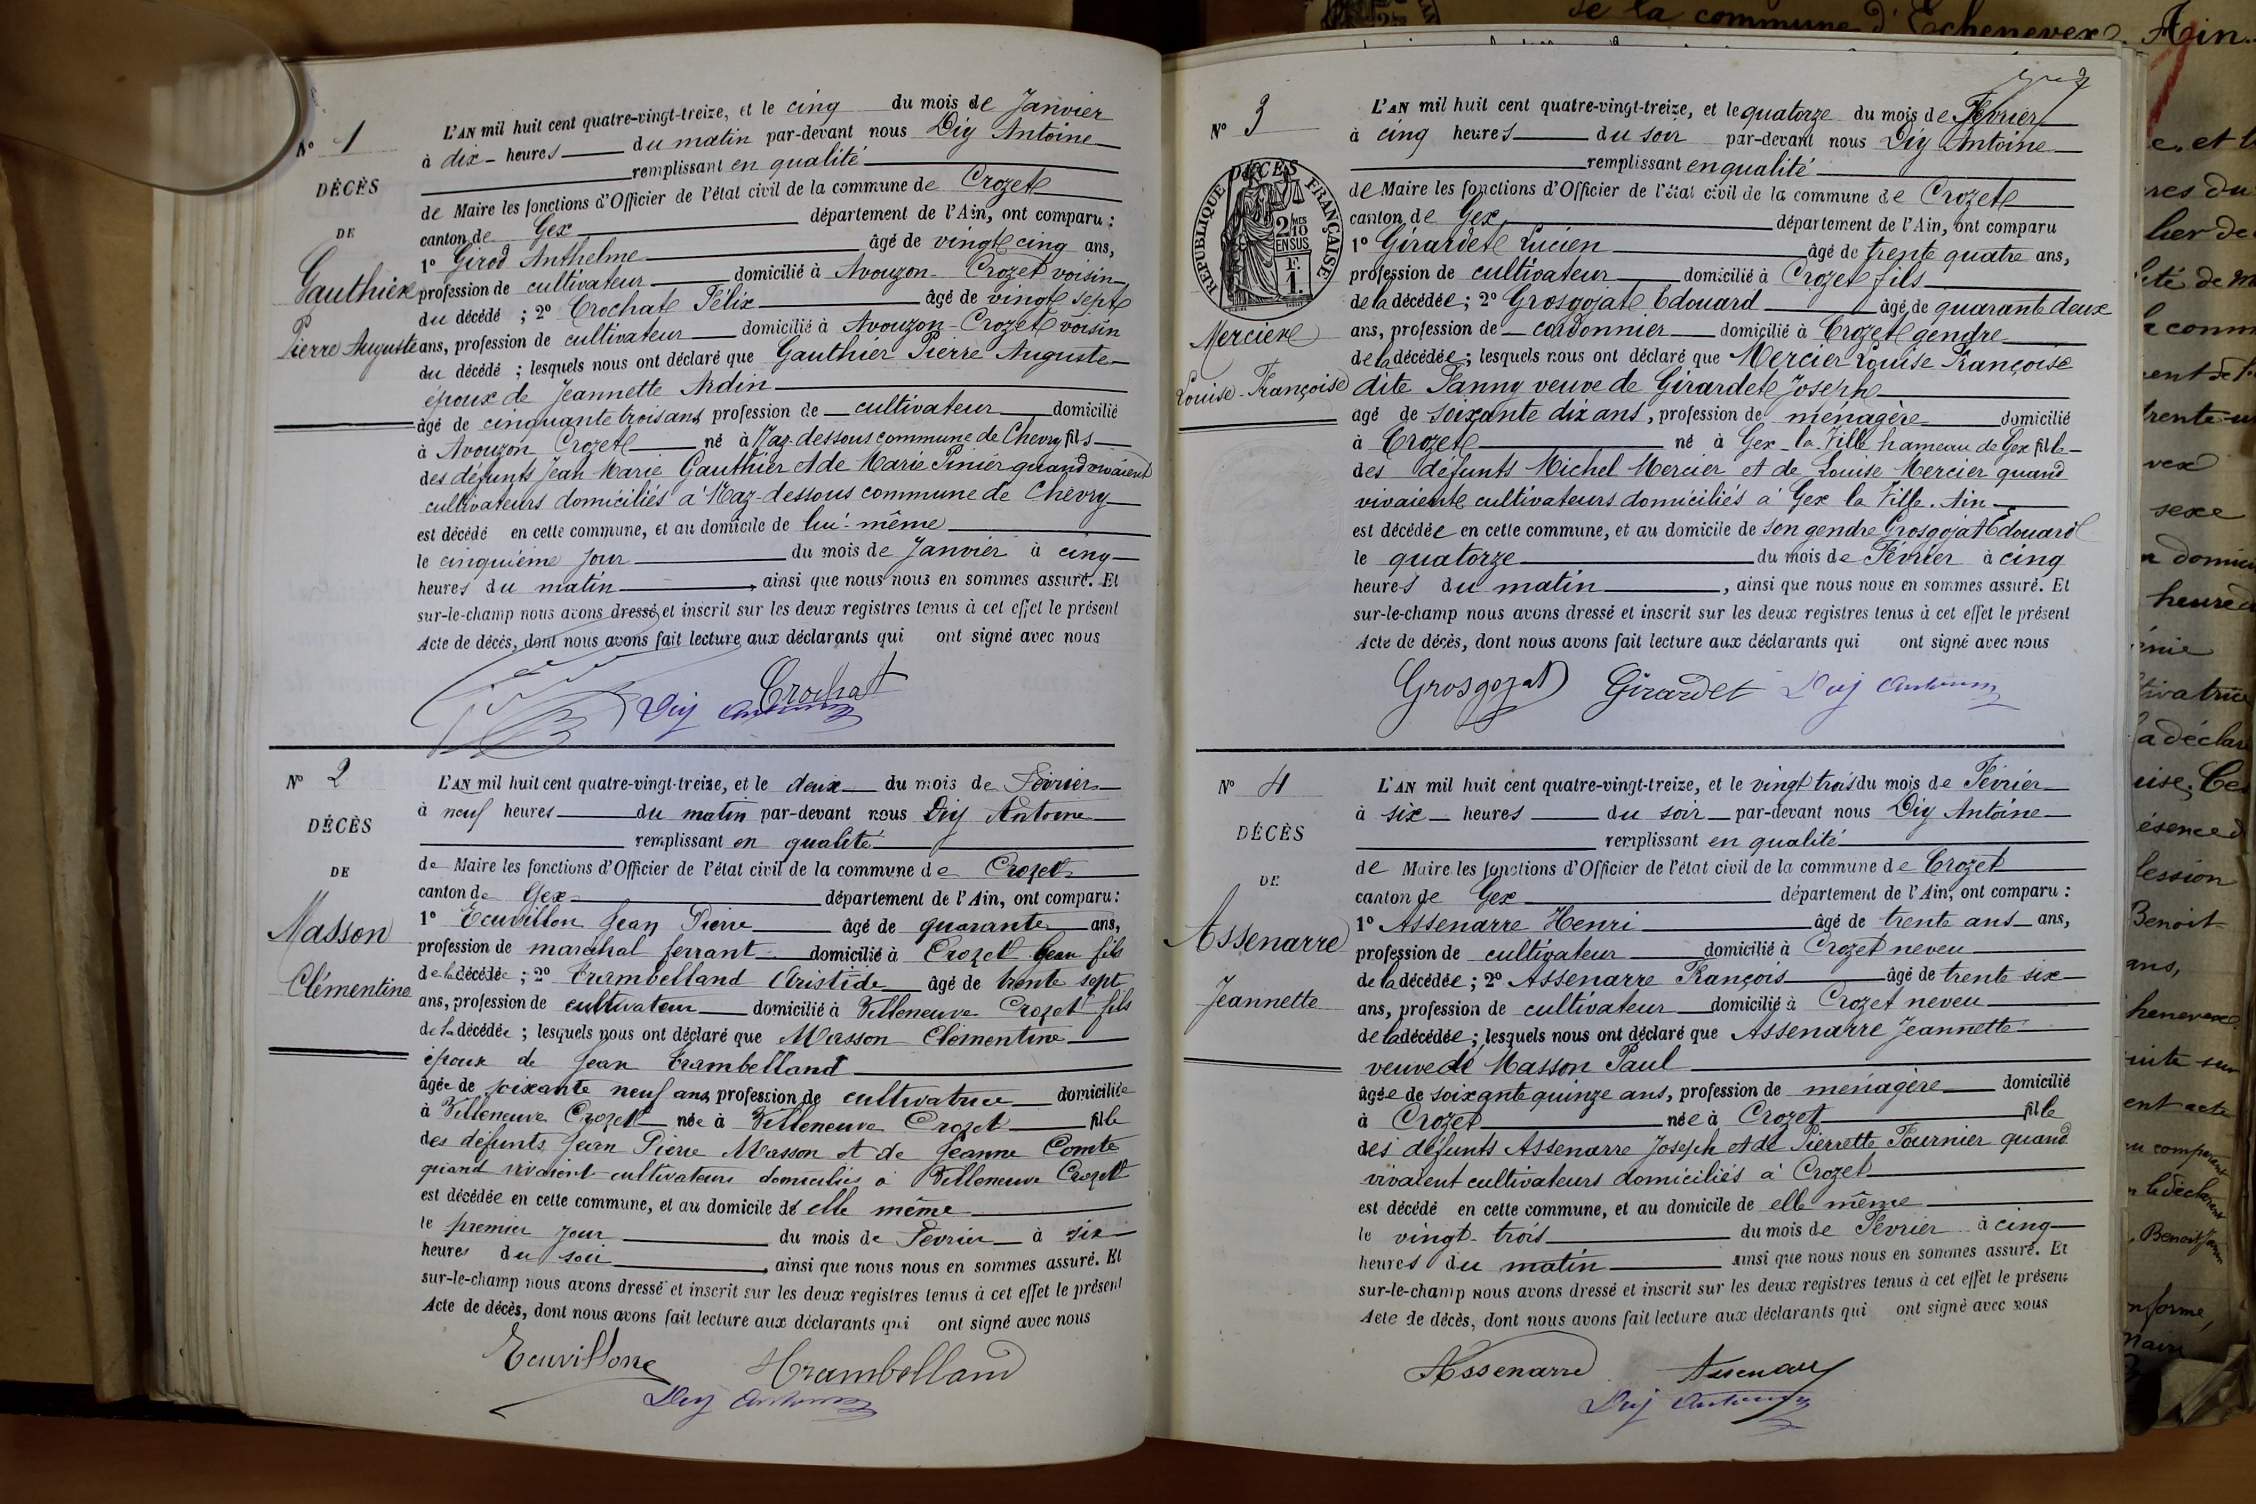 de la commune d'Echenevex, Ain.
N° 1
DÉCÈS
DE
Gauthier
Pierre Auguste
L'AN mil huit cent quatre-vingt-treize, et le cinq du mois de Janvier
à dix heures du matin par-devant nous Dig Antoine
remplissant en qualité
de Maire les fonctions d'Officier de l'état civil de la commune de Crozet
canton de Gex département de l'Ain, ont comparu :
1° Girod Anthelme âgé de vingt cinq ans,
profession de cultivateur domicilié à Avouzon - Crozet voisin
du décédé ; 2° Crochat Félix âgé de vingt sept
ans, profession de cultivateur domicilié à Avouzon - Crozet voisin
du décédé ; lesquels nous ont déclaré que Gauthier Pierre Auguste
époux de Jeannette Ardin
âgé de cinquante trois ans profession de cultivateur domicilié
à Avouzon Crozet né à Naz-dessous commune de Chevry fils
des défunts Jean Marie Gauthier et de Marie Pinier quand vivaient
cultivateurs domiciliés à Naz-dessous commune de Chevry
est décédé en cette commune, et au domicile de lui-même
le cinquième jour du mois de Janvier à cinq
heures du matin, ainsi que nous nous en sommes assuré. Et
sur-le-champ nous avons dressé et inscrit sur les deux registres tenus à cet effet le présent
Acte de décès, dont nous avons fait lecture aux déclarants qui ont signé avec nous
Crochat
Dig Antoine
N° 2
DÉCÈS
DE
Masson
Clémentine
L'AN mil huit cent quatre-vingt-treize, et le deux du mois de Février
à neuf heures du matin par-devant nous Dig Antoine
remplissant en qualité
de Maire les fonctions d'Officier de l'état civil de la commune de Crozet
canton de Gex département de l'Ain, ont comparu :
1° Ecuvillon Jean Pierre âgé de quarante ans,
profession de maréchal ferrant domicilié à Crozet beau fils
de la décédée ; 2° Trambelland Aristide âgé de trente sept
ans, profession de cultivateur domicilié à Villeneuve Crozet fils
de la décédée ; lesquels nous ont déclaré que Masson Clémentine
épouse de Jean Trambelland
âgée de soixante neuf ans profession de cultivatrice domiciliée
à Villeneuve Crozet née à Villeneuve Crozet fille
des défunts Jean Pierre Masson et de Jeanne Comte
quand vivaient cultivateurs domiciliés à Villeneuve Crozet
est décédée en cette commune, et au domicile de elle même
le premier jour du mois de Février à six
heures du soir, ainsi que nous nous en sommes assuré. Et
sur-le-champ nous avons dressé et inscrit sur les deux registres tenus à cet effet le présent
Acte de décès, dont nous avons fait lecture aux déclarants qui ont signé avec nous
Ecuvillon Trambelland
Dig Antoine
N° 3
DÉCÈS
RÉPUBLIQUE FRANÇAISE
2 MES
10
EN SUS
F.
1.
Mercier
Louise-Françoise
L'AN mil huit cent quatre-vingt-treize, et le quatorze du mois de Février
à cinq heures du soir par-devant nous Dig Antoine
remplissant en qualité
de Maire les fonctions d'Officier de l'état civil de la commune de Crozet
canton de Gex département de l'Ain, ont comparu
1° Girardet Lucien âgé de trente quatre ans,
profession de cultivateur domicilié à Crozet fils
de la décédée ; 2° Grosgojat Edouard âgé de quarante deux
ans, profession de cordonnier domicilié à Crozet gendre
de la décédée ; lesquels nous ont déclaré que Mercier Louise Françoise
dite Fanny veuve de Girardet Joseph
âgé de soixante dix ans, profession de ménagère domicilié
à Crozet né à Gex-la-Ville hameau de Gex fille
des défunts Michel Mercier et de Louise Mercier quand
vivaient cultivateurs domiciliés à Gex la Ville. Ain
est décédée en cette commune, et au domicile de son gendre Grosgojat Edouard
le quatorze du mois de Février à cinq
heures du matin, ainsi que nous nous en sommes assuré. Et
sur-le-champ nous avons dressé et inscrit sur les deux registres tenus à cet effet le présent
Acte de décès, dont nous avons fait lecture aux déclarants qui ont signé avec nous
Grosgojat Girardet Dig Antoine
N° 4
DÉCÈS
DE
Assenarre
Jeannette
L'AN mil huit cent quatre-vingt-treize, et le vingt trois du mois de Février
à six heures du soir par-devant nous Dig Antoine
remplissant en qualité
de Maire les fonctions d'Officier de l'état civil de la commune de Crozet
canton de Gex département de l'Ain, ont comparu :
1° Assenarre Henri âgé de trente ans ans,
profession de cultivateur domicilié à Crozet neveu
de la décédée ; 2° Assenarre François âgé de trente six
ans, profession de cultivateur domicilié à Crozet neveu
de la décédée ; lesquels nous ont déclaré que Assenarre Jeannette
veuve de Masson Paul
âgée de soixante quinze ans, profession de ménagère domicilié
à Crozet née à Crozet fille
des défunts Assenarre Joseph et de Pierrette Fournier quand
vivaient cultivateurs domiciliés à Crozet
est décédé en cette commune, et au domicile de elle même
le vingt-trois du mois de Février à cinq
heures du matin ainsi que nous nous en sommes assuré. Et
sur-le-champ nous avons dressé et inscrit sur les deux registres tenus à cet effet le présent
Acte de décès, dont nous avons fait lecture aux déclarants qui ont signé avec nous
Assenarre Assenarre
Dig Antoine